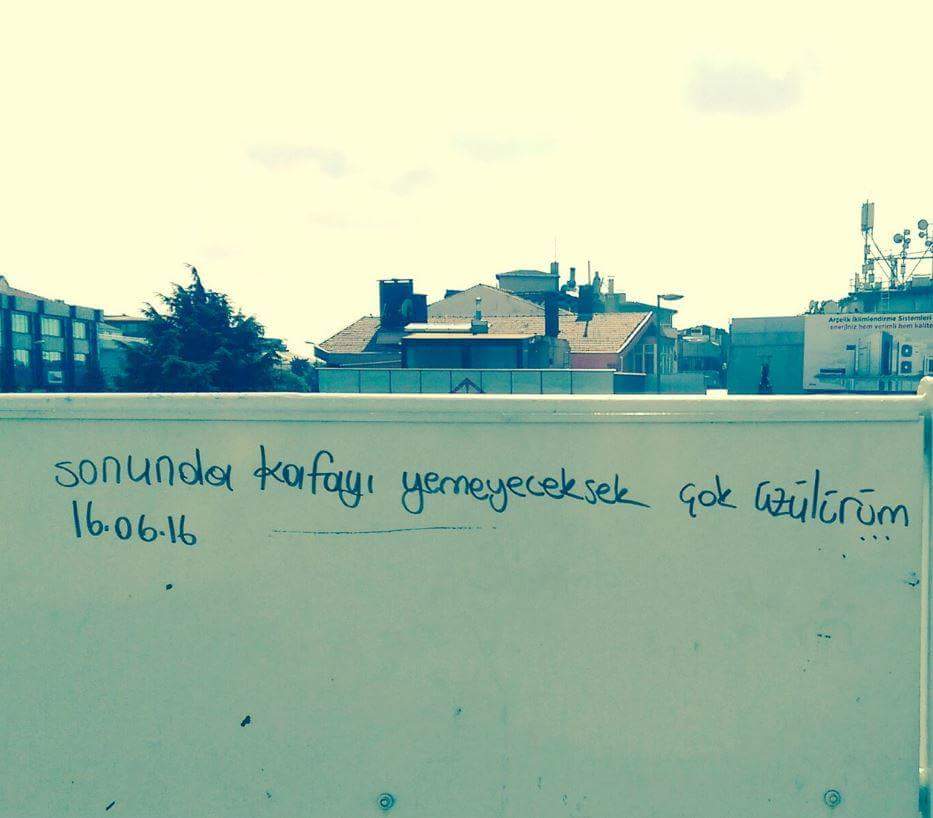 Arçelik İklimlendirme Sistemleri
enerjiniz hem verimli hem kalite
sonunda kafayı yemeyeceksek çok üzülürüm...
16.06.16